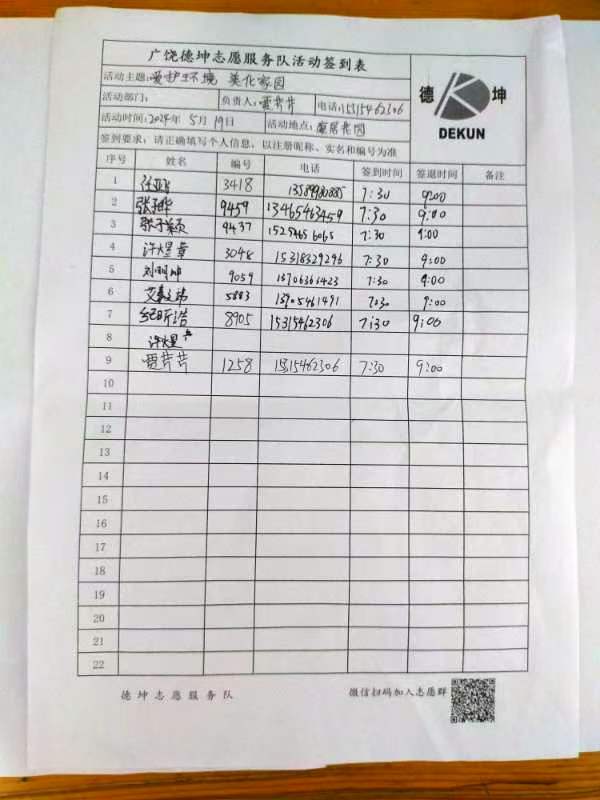 广饶德坤志愿服务队活动签到表
活动主题: 爱护环境 美化家园
活动部门: 负责人: 贾芹芹 电话: 15315462306
活动时间: 2024年 5月 19日 活动地点:
签到要求: 请正确填写个人信息, 以注册昵称、实名和编号为准
德 坤
DEKUN
序号 姓名 编号 电话 签到时间 签退时间 备注
1 3418 7:30 9:00
2 9459 13465463459 7:30 9:00
3 张子颖 9437 7:30 9:00
4 许煜童 3048 15318329296 7:30 9:00
5 刘明坤 9059 13706361423 7:30 9:00
6 13705461491 7:30 9:00
7 纪昕浩 8905 15315462306 7:30 9:00
8 许煜
9 贾芹芹 1258 15315462306 7:30 9:00
10
11
12
13
14
15
16
17
18
19
20
21
22
德坤志愿服务队 微信扫码加入志愿群